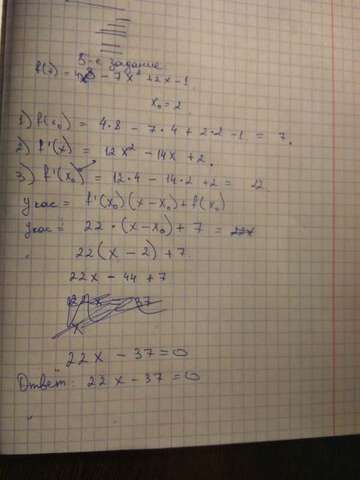 5-е задание
f(x) = 4x³ - 7x² + 2x - 1
x₀ = 2
1) f(x₀) = 4·8 - 7·4 + 2·2 - 1 = 7.
2) f'(x) = 12x² - 14x + 2.
3) f'(x₀) = 12·4 - 14·2 + 2 = 22
y кас = f'(x₀)(x - x₀) + f(x₀)
y кас = 22·(x - x₀) + 7 =
22(x - 2) + 7.
22x - 44 + 7
22x - 37 = 0
Ответ: 22x - 37 = 0